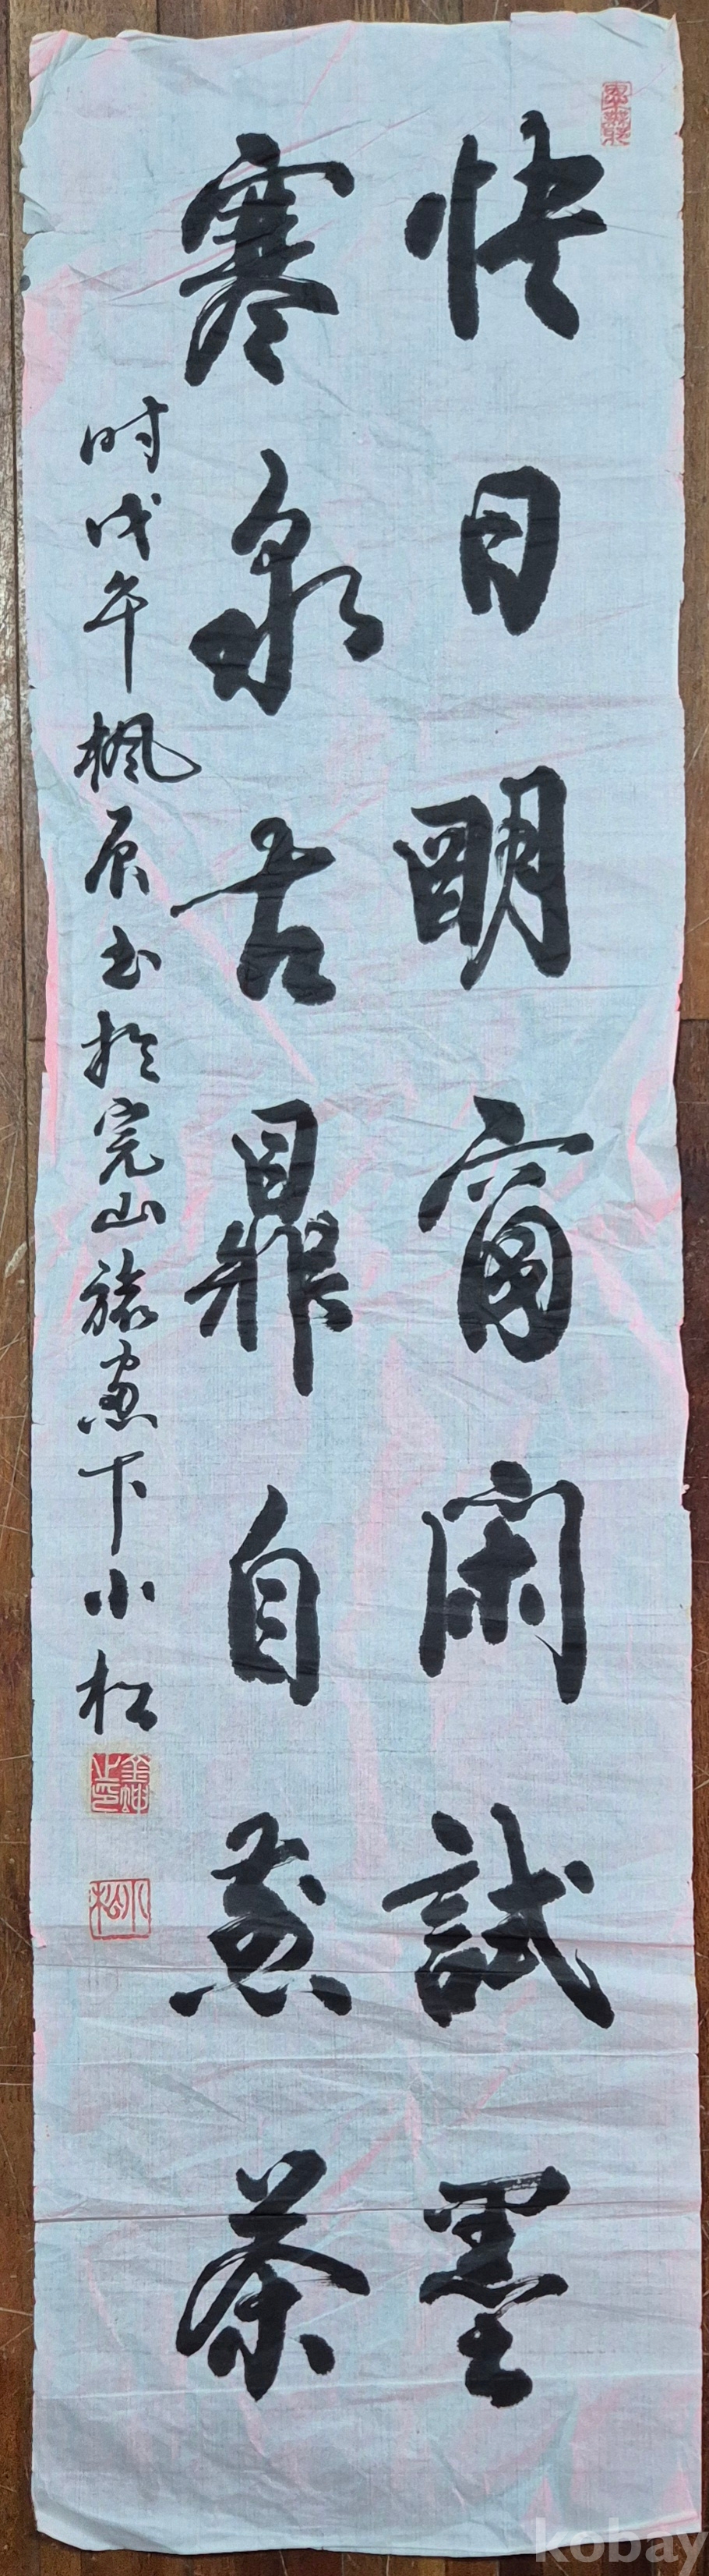 快日明窗闲試墨
寒泉古鼎自煮茶
时戊午楓辰书於完山旅窓下小松
小松
kobay